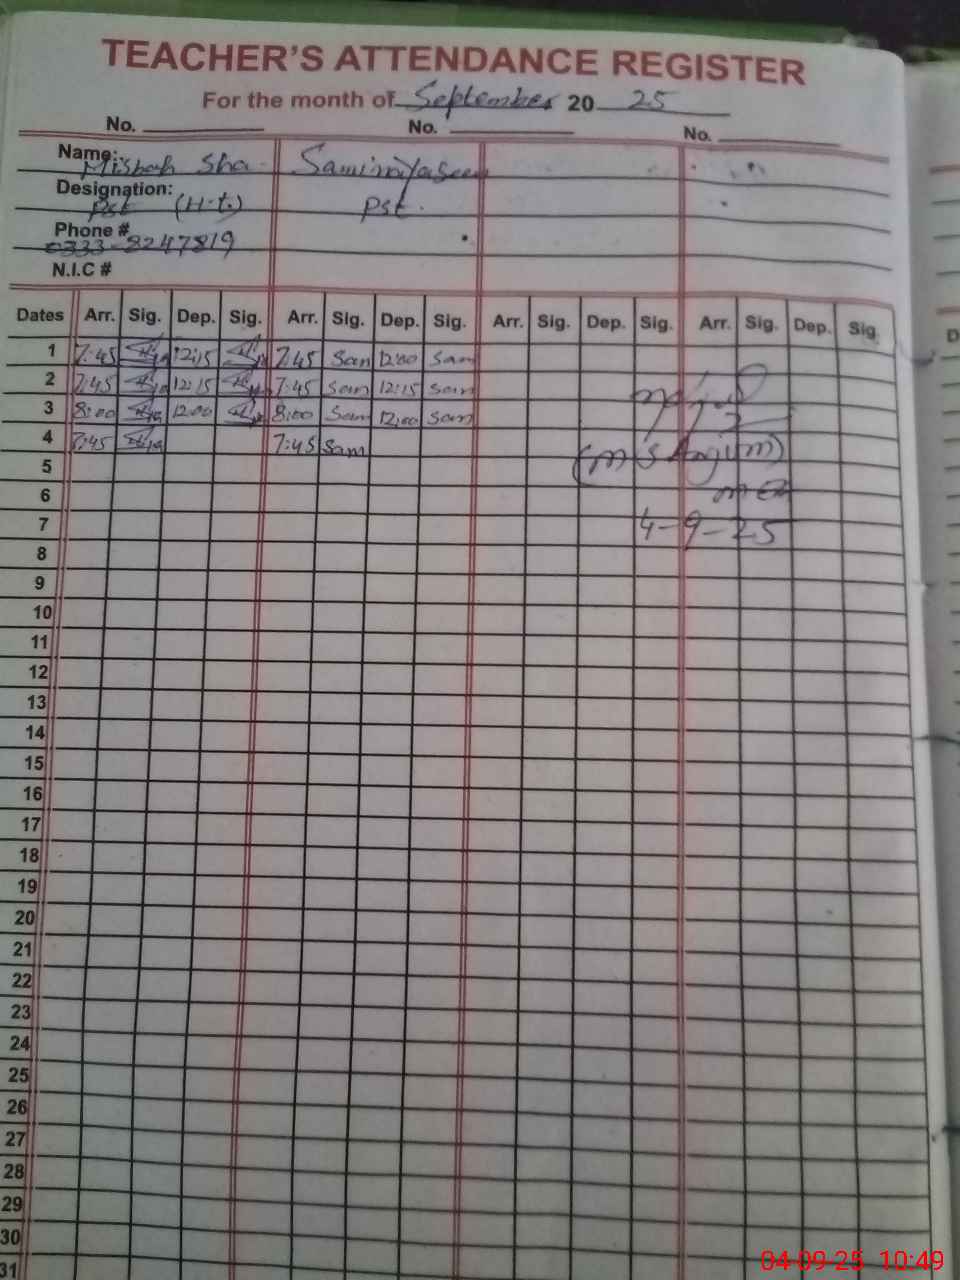 TEACHER'S ATTENDANCE REGISTER
For the month of September 20 25
No. No. No.
Name: Misbah Sha
Designation: Pst (H.t.) Pst.
Phone # 0333-8247819
N.I.C #
Dates Arr. Sig. Dep. Sig. Arr. Sig. Dep. Sig. Arr. Sig. Dep. Sig. Arr. Sig. Dep. Sig.
1 7:45 12:15 7:45 Sam 12:00 Sam
2 7:45 12:15 7:45 Sam 12:15 Sam
3 8:00 12:00 8:00 Sam 12:00 Sam
4 7:45 7:45 Sam
(Ms Anjum)
5
6
7 4-9-25
8
9
10
11
12
13
14
15
16
17
18
19
20
21
22
23
24
25
26
27
28
29
30
31
D
04-09-25 10:49